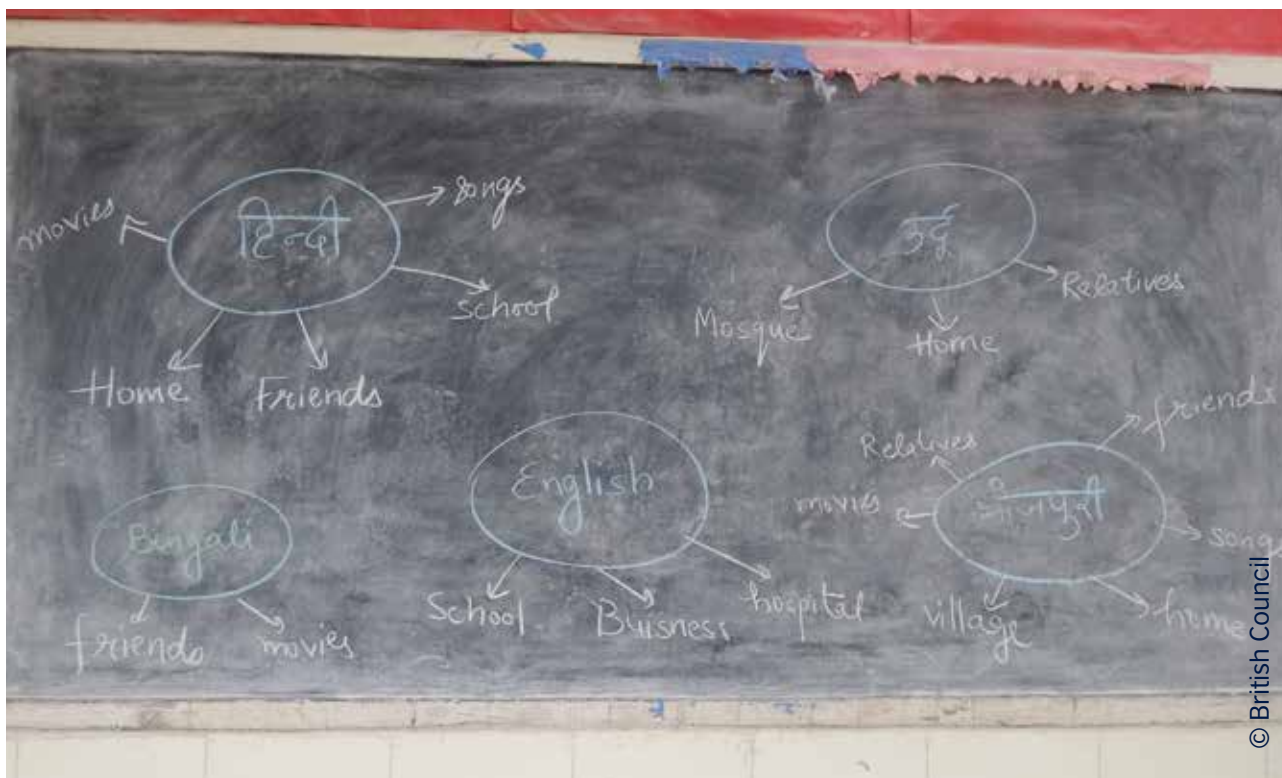 movies
हिन्दी
songs
school
Home
Friends
उर्दू
Mosque
Home
Relatives
Bingali
friends
movies
English
School
Buisness
hospital
भोजपुरी
Relatives
friends
movies
songs
village
home
© British Council